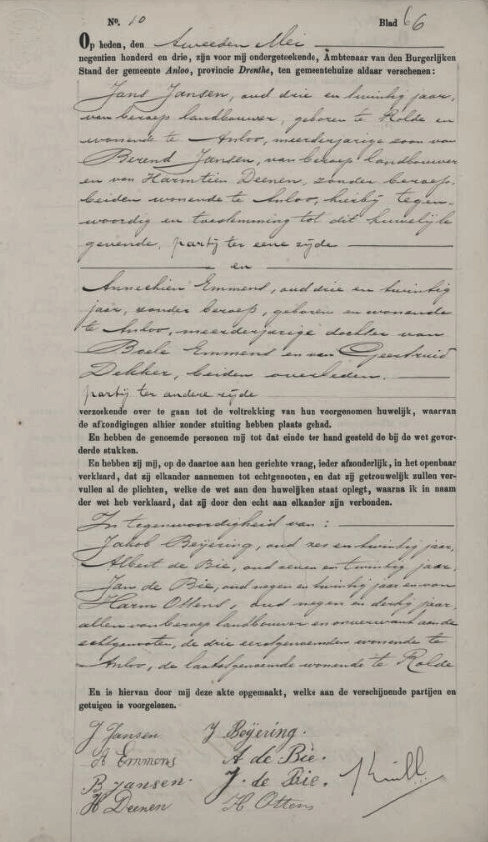 No. 10 Blad 66
Op heden, den tweeden Mei
negentien honderd en drie, zijn voor mij ondergeteekende, Ambtenaar van den Burgerlijken
Stand der gemeente Anloo, provincie Drenthe, ten gemeentehuize aldaar verschenen:
Jans Jansen, oud drie en twintig jaar,
van beroep landbouwer, geboren te Rolde en
wonende te Anloo, meerderjarige zoon van
Berend Jansen, van beroep landbouwer
en van Harmtien Deenen, zonder beroep,
beiden wonende te Anloo, hierbij tegen-
woordig en toestemming tot dit huwelijk
gevende, partij ter eene zijde
en
Annechien Emmens, oud drie en twintig
jaar, zonder beroep, geboren en wonende
te Anloo, meerderjarige dochter van
Boele Emmens en van Geertruid
Dekker, beiden overleden.
partij ter andere zijde
verzoekende over te gaan tot de voltrekking van hun voorgenomen huwelijk, waarvan
de afkondigingen alhier zonder stuiting hebben plaats gehad.
En hebben de genoemde personen mij tot dat einde ter hand gesteld de bij de wet gevor-
derde stukken.
En hebben zij mij, op de daartoe aan hen gerichte vraag, ieder afzonderlijk, in het openbaar
verklaard, dat zij elkander aannemen tot echtgenooten, en dat zij getrouwelijk zullen ver-
vullen al de plichten, welke de wet aan den huwelijken staat oplegt, waarna ik in naam
der wet heb verklaard, dat zij door den echt aan elkander zijn verbonden.
In tegenwoordigheid van:
Jakob Beijering, oud zes en twintig jaar,
Albert de Bie, oud zeven en twintig jaar,
Jan de Bie, oud negen en twintig jaar en van
Harm Ottens, oud negen en dertig jaar,
allen van beroep landbouwer en onverwant aan de
echtgenooten, de drie eerstgenoemden wonende te
Anloo, de laatstgenoemde wonende te Rolde
En is hiervan door mij deze akte opgemaakt, welke aan de verschijnende partijen en
getuigen is voorgelezen.
J Jansen J Beijering.
A Emmens A de Bie.
B Jansen. J. de Bie.
H Deenen H Ottens